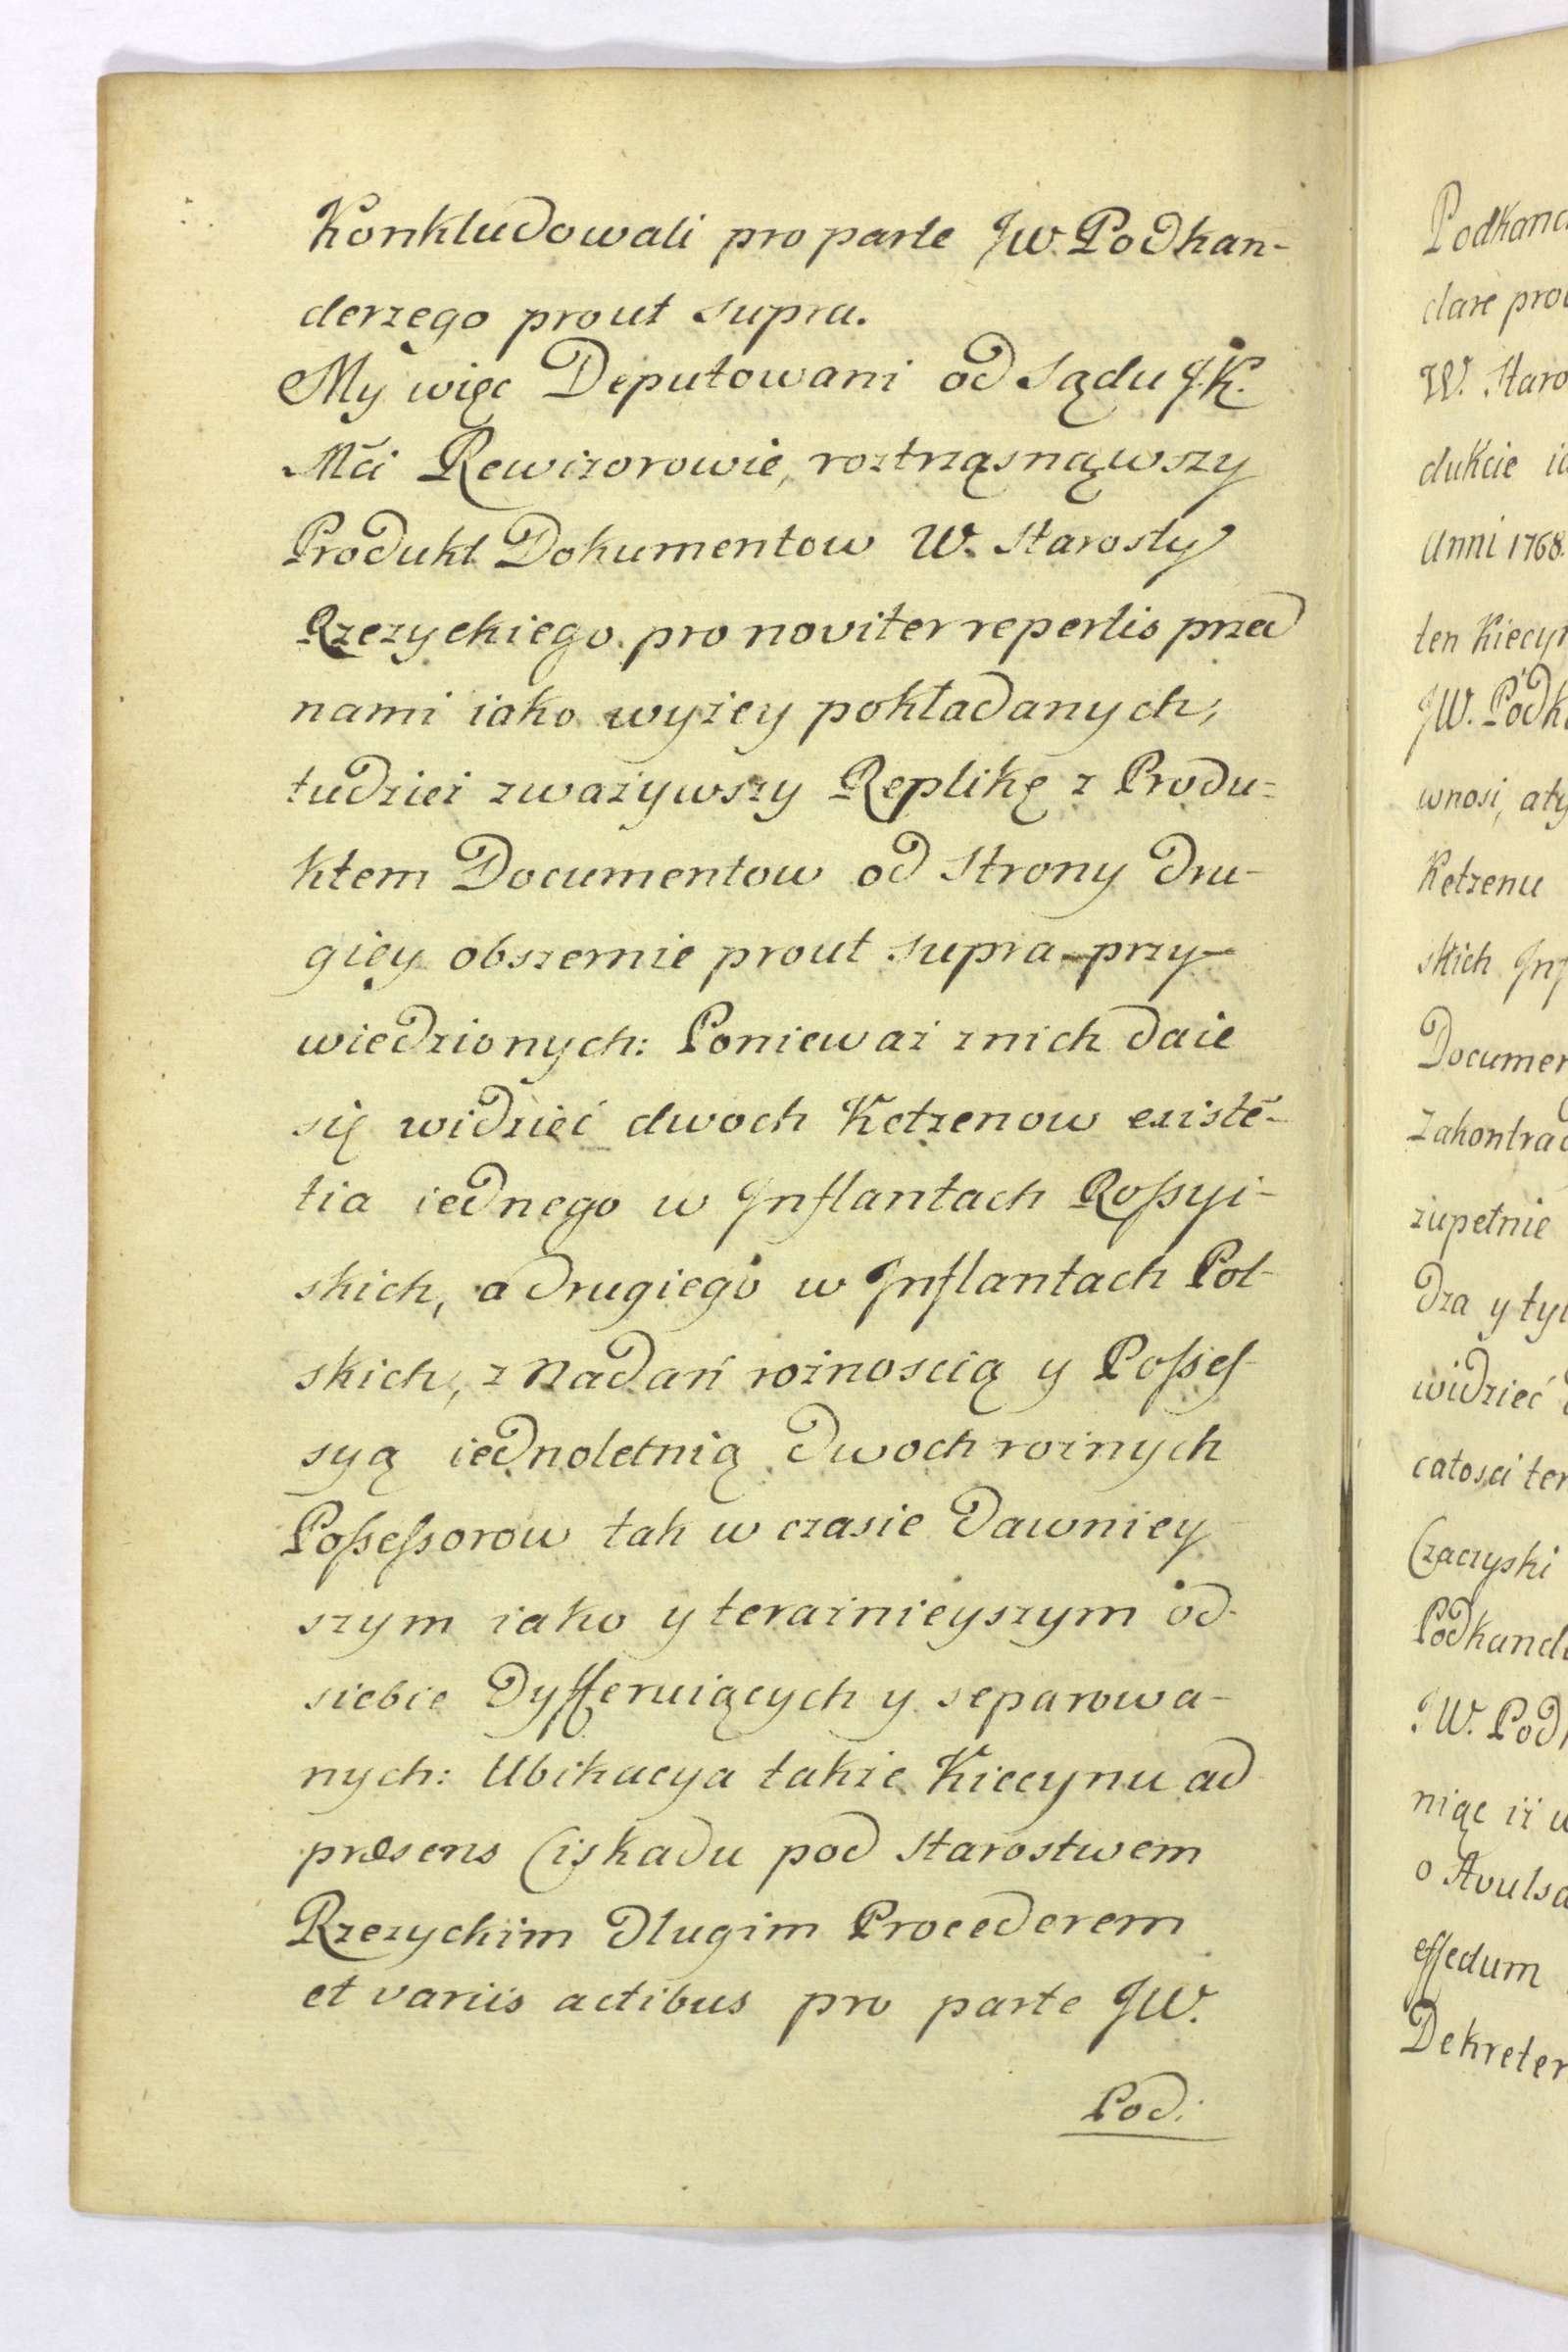 Konkludowali pro parte JW. Podkan-
clerzego prout supra.
My więc Deputowani od Sądu J.K.
Mći Rewizorowie, roztrząsnąwszy
Produkt Dokumentow W. Starosty
Rzezyckiego pro noviter repertis przed
nami iako wyżey pokładanych,
tudzież zważywszy Replikę z Produ-
ktem Documentow od Strony dru-
giey obszernie prout supra przy-
wiedzionych: Ponieważ z nich daie
się widzieć dwoch Ketzenow existē-
tia iednego w Inflantach Roſsyi-
skich, a drugiego w Inflantach Pol-
skich, z Nadań rożnoscią y Poſseſ-
syą iednoletnią dwoch rożnych
Poſseſsorow tak w czasie dawniey
szym iako y terażnieyszym od
siebie dyfferuiących y separowa-
nych: Ubikacya także Kiecynu ad
præsens Ciskadu pod Starostwem
Rzezyckim długim Procederem
et variis actibus pro parte JW.
Pod:
Podkanc
clare prou
W. Staro
dukcie ia
Anni 1768.
ten Kiecyn
JW. Podk
wnosi, aty
Ketzenu
skich Inf
Documen
Zakontrac
zupełnie
dza y tyl
widzieć
całosci ter
Czaczyski
Podkancl
JW. Podk
niąc iż w
o Avulsa
effectum
Dekreter